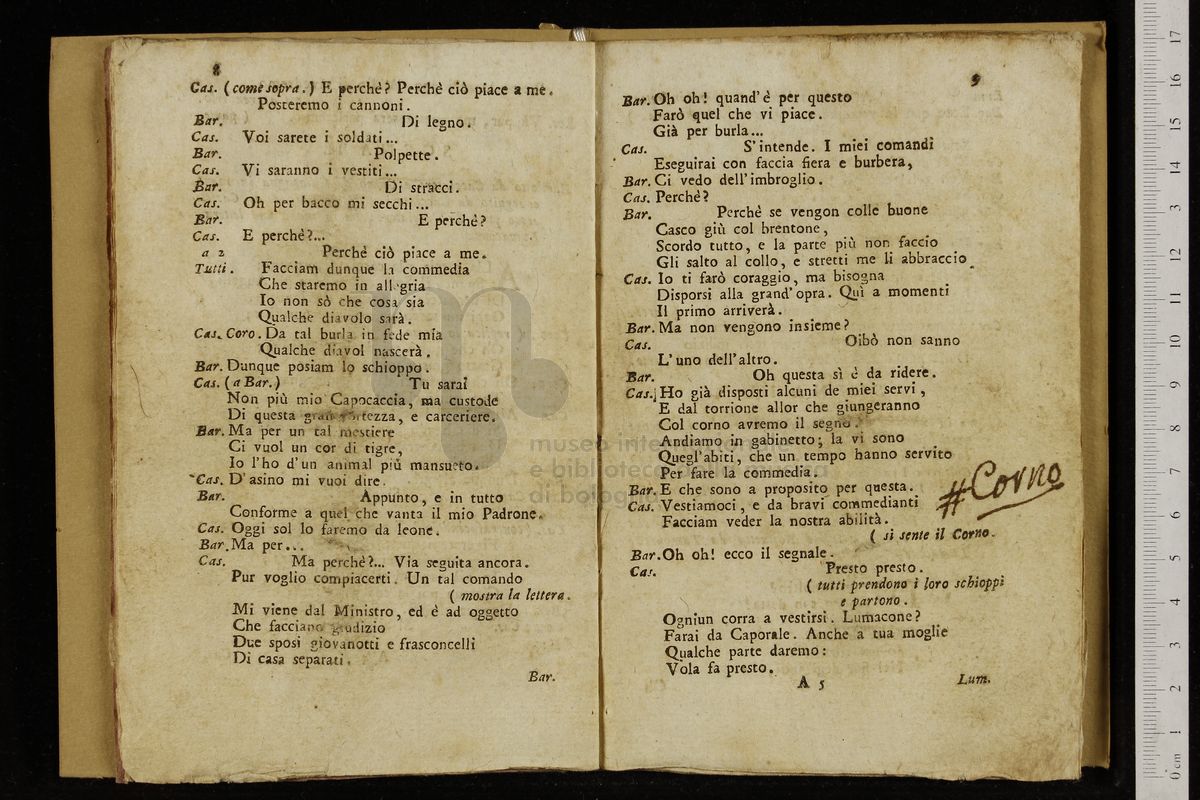 8
Cas. (come sopra.) E perchè? Perchè ciò piace a me.
Posteremo i cannoni.
Bar. Di legno.
Cas. Voi sarete i soldati...
Bar. Polpette.
Cas. Vi saranno i vestiti...
Bar. Di stracci.
Cas. Oh per bacco mi secchi...
Bar. E perchè?
Cas. E perchè?...
a 2 Perchè ciò piace a me.
Tutti. Facciam dunque la commedia
Che staremo in allegria
Io non sò che cosa sia
Qualche diavolo sarà.
Cas. Coro. Da tal burla in fede mia
Qualche diavol nascerà.
Bar. Dunque posiam lo schioppo.
Cas. (a Bar.) Tu sarai
Non più mio Capocaccia, ma custode
Di questa gran fortezza, e carceriere.
Bar. Ma per un tal mestiere
Ci vuol un cor di tigre,
Io l'ho d'un animal più mansueto.
Cas. D'asino mi vuoi dire.
Bar. Appunto, e in tutto
Conforme a quel che vanta il mio Padrone.
Cas. Oggi sol lo faremo da leone.
Bar. Ma per...
Cas. Ma perchè?... Via seguita ancora.
Pur voglio compiacerti. Un tal comando
( mostra la lettera.
Mi viene dal Ministro, ed è ad oggetto
Che facciano giudizio
Due sposi giovanotti e frasconcelli
Di casa separati.
Bar.
9
Bar. Oh oh! quand'è per questo
Farò quel che vi piace.
Già per burla...
Cas. S'intende. I miei comandi
Eseguirai con faccia fiera e burbera,
Bar. Ci vedo dell'imbroglio.
Cas. Perchè?
Bar. Perchè se vengon colle buone
Casco giù col brentone,
Scordo tutto, e la parte più non faccio
Gli salto al collo, e stretti me li abbraccio
Cas. Io ti farò coraggio, ma bisogna
Disporsi alla grand'opra. Quì a momenti
Il primo arriverà.
Bar. Ma non vengono insieme?
Cas. Oibò non sanno
L'uno dell'altro.
Bar. Oh questa sì è da ridere.
Cas. Ho già disposti alcuni de miei servi,
E dal torrione allor che giungeranno
Col corno avremo il segno.
Andiamo in gabinetto; la vi sono
Quegl'abiti, che un tempo hanno servito
Per fare la commedia.
Bar. E che sono a proposito per questa.
Cas. Vestiamoci, e da bravi commedianti
Facciam veder la nostra abilità.
#Corno
( si sente il Corno.
Bar. Oh oh! ecco il segnale.
Cas. Presto presto.
( tutti prendono i loro schioppi
e partono.
Ogniun corra a vestirsi. Lumacone?
Farai da Caporale. Anche a tua moglie
Qualche parte daremo:
Vola fa presto.
A 5 Lum.